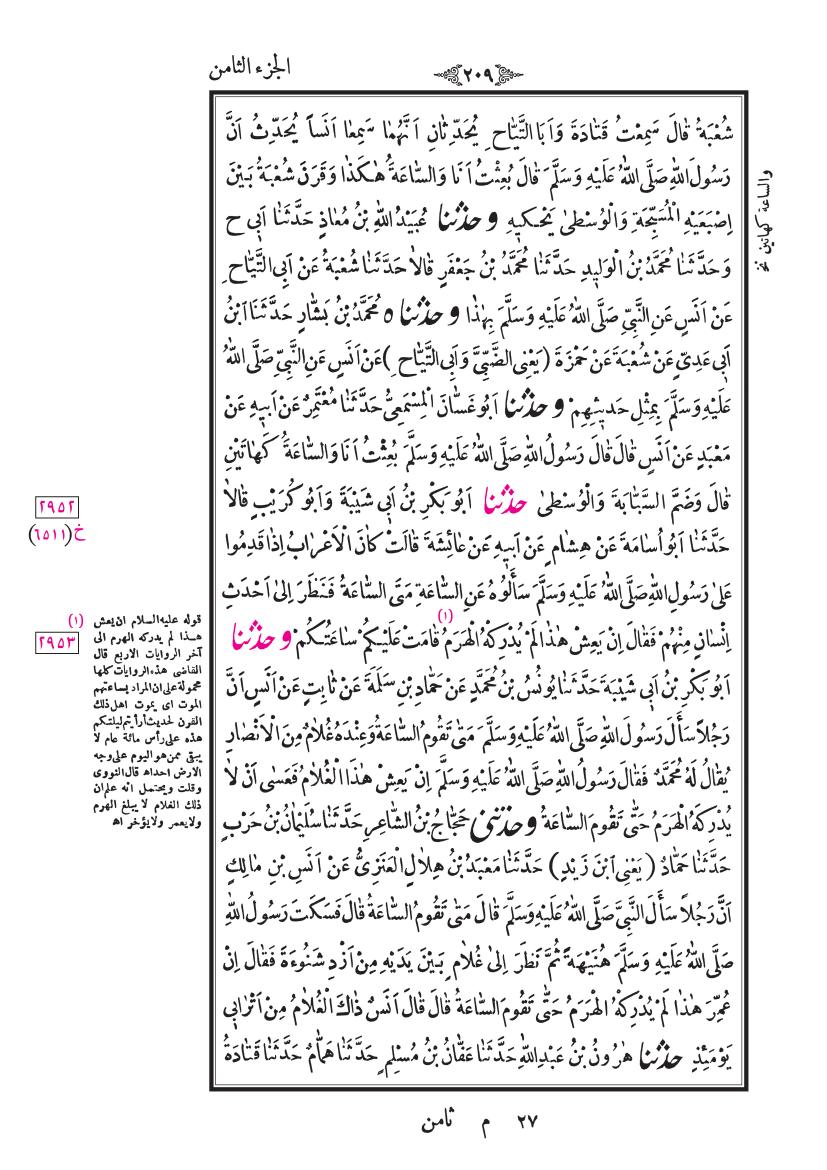 الجزء الثامن
٢٠٩
شُعْبَةُ قَالَ سَمِعْتُ قَتَادَةَ وَاَبَا التَّيَّاحِ يُحَدِّثَانِ اَنَّهُمَا سَمِعَا اَنَساً يُحَدِّثُ اَنَّ
رَسُولَ اللهِ صَلَّى اللهُ عَلَيْهِ وَسَلَّمَ قَالَ بُعِثْتُ اَنَا وَالسَّاعَةُ هٰكَذَا وَقَرَنَ شُعْبَةُ بَيْنَ
اِصْبَعَيْهِ الْمُسَبِّحَةِ وَالْوُسْطىٰ يَحْكيهِ وحدثنا عُبَيْدُ اللهِ بْنُ مُعَاذٍ حَدَّثَنَا اَبى ح
وَحَدَّثَنَا مُحَمَّدُ بْنُ الْوَليدِ حَدَّثَنَا مُحَمَّدُ بْنُ جَعْفَرٍ قَالاَ حَدَّثَنَا شُعْبَةُ عَنْ اَبِى التَّيَّاحِ
عَنْ اَنَسٍ عَنِ النَّبِىِّ صَلَّى اللهُ عَلَيْهِ وَسَلَّمَ بِهٰذَا وحدثناه مُحَمَّدُ بْنُ بَشَّارٍ حَدَّثَنَا ابْنُ
اَبى عَدِىٍّ عَنْ شُعْبَةَ عَنْ حَمْزَةَ (يَعْنِى الضَّبِّىَّ وَاَبِى التَّيَّاحِ) عَنْ اَنَسٍ عَنِ النَّبِىِّ صَلَّى اللهُ
عَلَيْهِ وَسَلَّمَ بِمِثْلِ حَديثِهِمْ وحدثنا اَبُو غَسَّانَ الْمِسْمَعِىُّ حَدَّثَنَا مُعْتَمِرٌ عَنْ اَبيهِ عَنْ
مَعْبَدٍ عَنْ اَنَسٍ قَالَ قَالَ رَسُولُ اللهِ صَلَّى اللهُ عَلَيْهِ وَسَلَّمَ بُعِثْتُ اَنَا وَالسَّاعَةُ كَهَاتَيْنِ
قَالَ وَضَمَّ السَّبَّابَةَ وَالْوُسْطىٰ حدثنا اَبُو بَكْرِ بْنُ اَبى شَيْبَةَ وَاَبُو كُرَيْبٍ قَالاَ
حَدَّثَنَا اَبُو اُسَامَةَ عَنْ هِشَامٍ عَنْ اَبيهِ عَنْ عَائِشَةَ قَالَتْ كَانَ الْاَعْرَابُ اِذَا قَدِمُوا
عَلىٰ رَسُولِ اللهِ صَلَّى اللهُ عَلَيْهِ وَسَلَّمَ سَأَلُوهُ عَنِ السَّاعَةِ مَتَى السَّاعَةُ فَنَظَرَ اِلىٰ اَحْدَثِ
اِنْسَانٍ مِنْهُمْ فَقَالَ اِنْ يَعِشْ هٰذَا لَمْ يُدْرِكْهُ الْهَرَمُ (١) قَامَتْ عَلَيْكُمْ سَاعَتُكُمْ وحدثنا
اَبُو بَكْرِ بْنُ اَبى شَيْبَةَ حَدَّثَنَا يُونُسُ بْنُ مُحَمَّدٍ عَنْ حَمَّادِ بْنِ سَلَمَةَ عَنْ ثَابِتٍ عَنْ اَنَسٍ اَنَّ
رَجُلاً سَأَلَ رَسُولَ اللهِ صَلَّى اللهُ عَلَيْهِ وَسَلَّمَ مَتىٰ تَقُومُ السَّاعَةُ وَعِنْدَهُ غُلاَمٌ مِنَ الْاَنْصَارِ
يُقَالُ لَهُ مُحَمَّدٌ فَقَالَ رَسُولُ اللهِ صَلَّى اللهُ عَلَيْهِ وَسَلَّمَ اِنْ يَعِشْ هٰذَا الْغُلاَمُ فَعَسىٰ اَنْ لاَ
يُدْرِكَهُ الْهَرَمُ حَتّىٰ تَقُومَ السَّاعَةُ وحدثنى حَجَّاجُ بْنُ الشَّاعِرِ حَدَّثَنَا سُلَيْمَانُ بْنُ حَرْبٍ
حَدَّثَنَا حَمَّادٌ (يَعْنِى ابْنَ زَيْدٍ) حَدَّثَنَا مَعْبَدُ بْنُ هِلاَلٍ الْعَنَزِىُّ عَنْ اَنَسِ بْنِ مَالِكٍ
اَنَّ رَجُلاً سَأَلَ النَّبِىَّ صَلَّى اللهُ عَلَيْهِ وَسَلَّمَ قَالَ مَتىٰ تَقُومُ السَّاعَةُ قَالَ فَسَكَتَ رَسُولُ اللهِ
صَلَّى اللهُ عَلَيْهِ وَسَلَّمَ هُنَيْهَةً ثُمَّ نَظَرَ اِلىٰ غُلاَمٍ بَيْنَ يَدَيْهِ مِنْ اَزْدِ شَنُوءَةَ فَقَالَ اِنْ
عُمِّرَ هٰذَا لَمْ يُدْرِكْهُ الْهَرَمُ حَتّىٰ تَقُومَ السَّاعَةُ قَالَ قَالَ اَنَسٌ ذَاكَ الْغُلاَمُ مِنْ اَتْرَابى
يَوْمَئِذٍ حدثنا هٰرُونُ بْنُ عَبْدِ اللهِ حَدَّثَنَا عَفَّانُ بْنُ مُسْلِمٍ حَدَّثَنَا هَمَّامٌ حَدَّثَنَا قَتَادَةُ
والساعة كهاتين نخ
٢٩٥٢
خ (٦٥١١)
٢٩٥٣
(١) قوله عليه السلام ان يعش
هذا لم يدركه الهرم الى
آخر الروايات الاربع قال
القاضى هذه الروايات كلها
محمولة على ان المراد بساعتهم
الموت اى يموت اهل ذلك
القرن لحديث أرأيتم ليلتكم
هذه على رأس مائة عام لا
يبقى ممن هو اليوم على وجه
الارض احد اه قال النووى
وقلت ويحتمل انه علم ان
ذلك الغلام لا يبلغ الهرم
ولا يعمر ولا يؤخر اه
٢٧ م ثامن